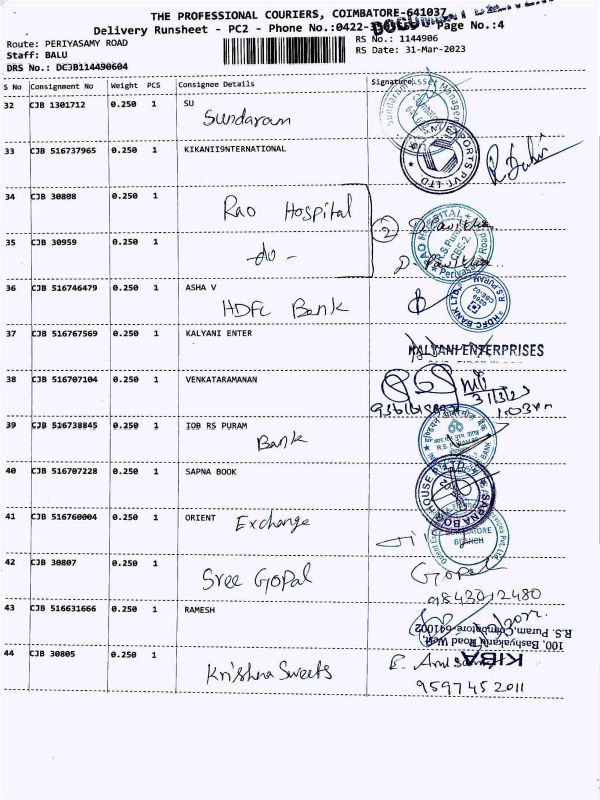 THE PROFESSIONAL COURIERS, COIMBATORE-641037
Delivery Runsheet - PC2 - Phone No.:0422- Page No.:4
Route: PERIYASAMY ROAD
RS No.: 1144906
Staff: BALU
RS Date: 31-Mar-2023
DRS No.: DCJB114490604
S No Consignment No Weight PCS Consignee Details Signature
32 CJB 1301712 0.250 1 SU
Sundaram
33 CJB 516737965 0.250 1 KIKANII9NTERNATIONAL
34 CJB 30808 0.250 1
Rao Hospital
2
35 CJB 30959 0.250 1
-do-
36 CJB 516746479 0.250 1 ASHA V
HDFC Bank
HDFC BANK LTD. R.S PURAM
37 CJB 516767569 0.250 1 KALYANI ENTER
KALYANI ENTERPRISES
38 CJB 516707104 0.250 1 VENKATARAMANAN
39 CJB 516738845 0.250 1 IOB RS PURAM
Bank
40 CJB 516707228 0.250 1 SAPNA BOOK
41 CJB 516760004 0.250 1 ORIENT Exchange
COIMBATORE
BRANCH
42 CJB 30807 0.250 1
Sree Gopal
Gopal
9843012480
43 CJB 516631666 0.250 1 RAMESH
R.S. Puram, Coimbatore-641002
100, Bashyakarlu Road West,
KIBA
44 CJB 30805 0.250 1
Krishna Sweets
9597452011